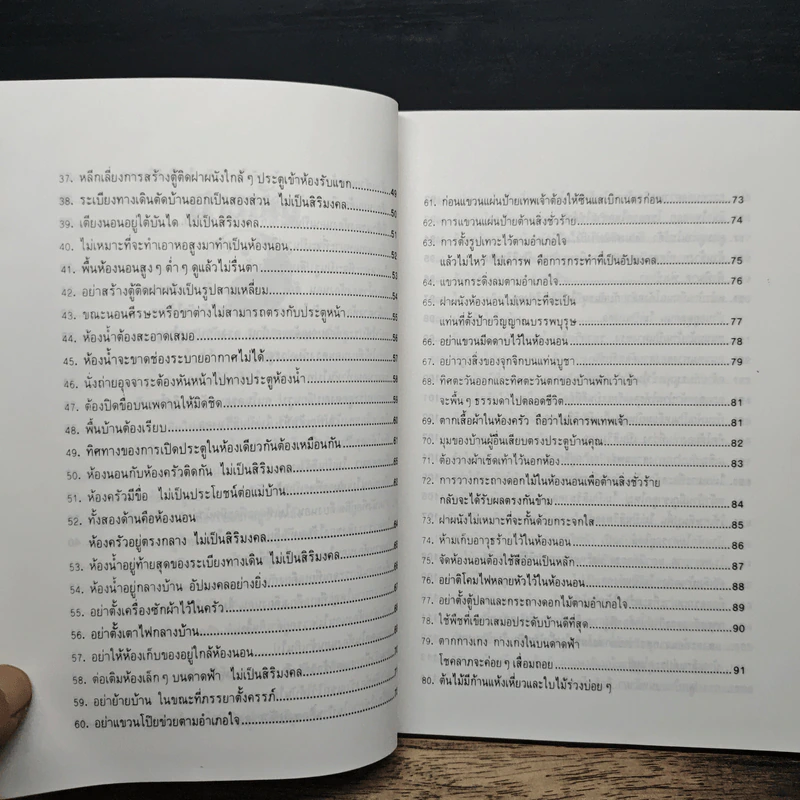 37. หลีกเลี่ยงการสร้างตู้ติดฝาผนังใกล้ ๆ ประตูเข้าห้องรับแขก.......... 49
38. ระเบียงทางเดินตัดบ้านออกเป็นสองส่วน ไม่เป็นสิริมงคล.......... 50
39. เตียงนอนอยู่ใต้บันได ไม่เป็นสิริมงคล.......... 51
40. ไม่เหมาะที่จะทำเอาหอสูงมาทำเป็นห้องนอน.......... 52
41. พื้นห้องนอนสูง ๆ ต่ำ ๆ ดูแล้วไม่รื่นตา.......... 53
42. อย่าสร้างตู้ติดฝาผนังเป็นรูปสามเหลี่ยม.......... 54
43. ขณะนอนศีรษะหรือขาต่างไม่สามารถตรงกับประตูหน้า..........
44. ห้องน้ำต้องสะอาดเสมอ..........
45. ห้องน้ำจะขาดช่องระบายอากาศไม่ได้.......... 57
46. นั่งถ่ายอุจจาระต้องหันหน้าไปทางประตูห้องน้ำ..........
47. ต้องปิดขื่อบนเพดานให้มิดชิด..........
48. พื้นบ้านต้องเรียบ..........
49. ทิศทางของการเปิดประตูในห้องเดียวกันต้องเหมือนกัน..........
50. ห้องนอนกับห้องครัวติดกัน ไม่เป็นสิริมงคล..........
51. ห้องครัวมีขื่อ ไม่เป็นประโยชน์ต่อแม่บ้าน..........
52. ทั้งสองด้านคือห้องนอน
ห้องครัวอยู่ตรงกลาง ไม่เป็นสิริมงคล..........
53. ห้องน้ำอยู่ท้ายสุดของระเบียงทางเดิน ไม่เป็นสิริมงคล..........
54. ห้องน้ำอยู่กลางบ้าน อัปมงคลอย่างยิ่ง..........
55. อย่าตั้งเครื่องซักผ้าไว้ในครัว..........
56. อย่าตั้งเตาไฟกลางบ้าน..........
57. อย่าให้ห้องเก็บของอยู่ใกล้ห้องนอน..........
58. ต่อเติมห้องเล็ก ๆ บนดาดฟ้า ไม่เป็นสิริมงคล..........
59. อย่าย้ายบ้าน ในขณะที่ภรรยาตั้งครรภ์..........
60. อย่าแขวนโป๊ยข่วยตามอำเภอใจ..........
61. ก่อนแขวนแผ่นป้ายเทพเจ้าต้องให้ซินแสเบิกเนตรก่อน.......... 73
62. การแขวนแผ่นป้ายต้านสิ่งชั่วร้าย.......... 74
63. การตั้งรูปเทวะไว้ตามอำเภอใจ
แล้วไม่ไหว้ ไม่เคารพ คือการกระทำที่เป็นอัปมงคล.......... 75
64. แขวนกระดิ่งลมตามอำเภอใจ.......... 76
65. ฝาผนังห้องนอนไม่เหมาะที่จะเป็น
แท่นที่ตั้งป้ายวิญญาณบรรพบุรุษ.......... 77
66. อย่าแขวนมีดดาบไว้ในห้องนอน.......... 78
67. อย่าวางสิ่งของจุกจิกบนแท่นบูชา.......... 79
68. ทิศตะวันออกและทิศตะวันตกของบ้านพักเว้าเข้า
จะพื้น ๆ ธรรมดาไปตลอดชีวิต.......... 81
69. ตากเสื้อผ้าในห้องครัว ถือว่าไม่เคารพเทพเจ้า.......... 81
70. มุมของบ้านผู้อื่นเสียบตรงประตูบ้านคุณ.......... 82
71. ต้องวางผ้าเช็ดเท้าไว้นอกห้อง.......... 83
72. การวางกระถางดอกไม้ในห้องนอนเพื่อต้านสิ่งชั่วร้าย
กลับจะได้รับผลตรงกันข้าม.......... 84
73. ฝาผนังไม่เหมาะที่จะกั้นด้วยกระจกใส.......... 85
74. ห้ามเก็บอาวุธร้ายไว้ในห้องนอน.......... 86
75. จัดห้องนอนต้องใช้สีอ่อนเป็นหลัก.......... 87
76. อย่าติโคมไฟหลายหัวไว้ในห้องนอน.......... 88
77. อย่าตั้งตู้ปลาและกระถางดอกไม้ตามอำเภอใจ.......... 89
78. ใช้พืชที่เขียวเสมอประดับบ้านดีที่สุด.......... 90
79. ตากกางเกง กางเกงในบนดาดฟ้า
โชคลาภจะค่อย ๆ เสื่อมถอย.......... 91
80. ต้นไม้มีก้านแห้งเหี่ยวและใบไม้ร่วงบ่อย ๆ